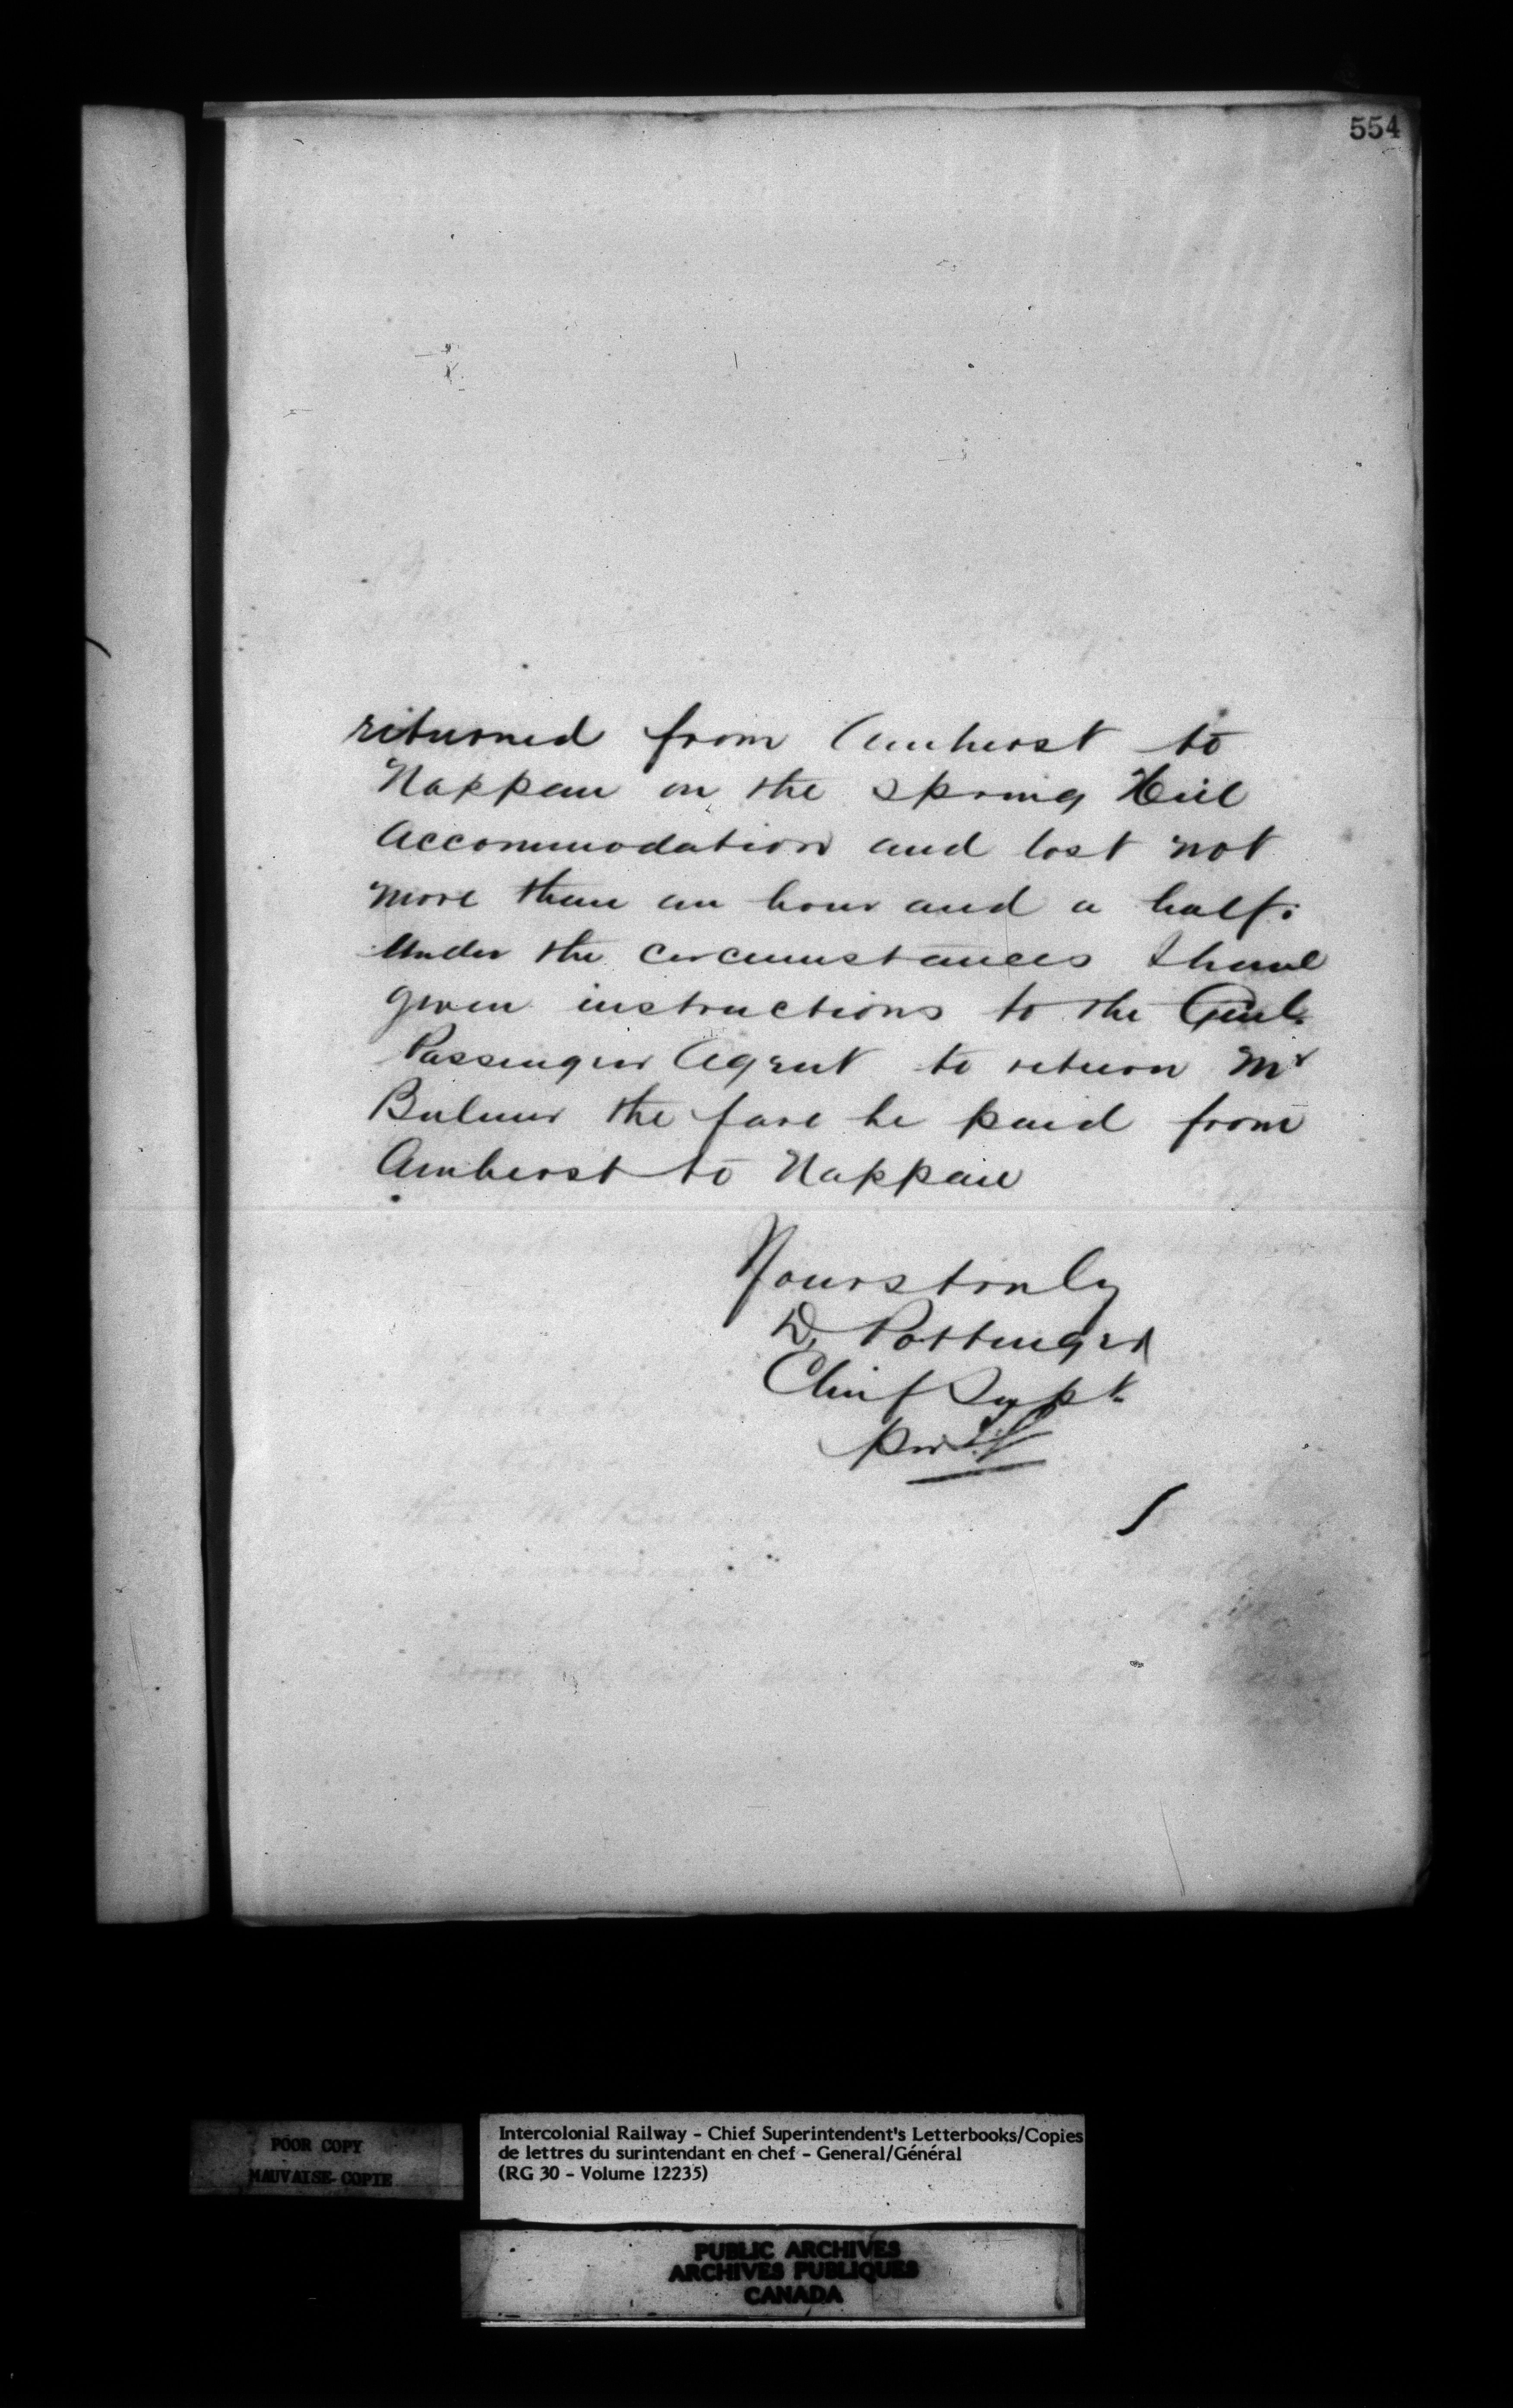 554
returned from Amherst to
Nappan on the Spring Hill
Accommodation and lost not
more than an hour and a half.
Under the circumstances I have
given instructions to the Genl.
Passenger Agent to return Mr
Bulmer the fare he paid from
Amherst to Nappan
Yours truly
D. Pottinger
Chief Supt.
per
POOR COPY
MAUVAISE COPIE
Intercolonial Railway - Chief Superintendent's Letterbooks/Copies
de lettres du surintendant en chef - General/Général
(RG 30 - Volume 12235)
PUBLIC ARCHIVES
ARCHIVES PUBLIQUES
CANADA